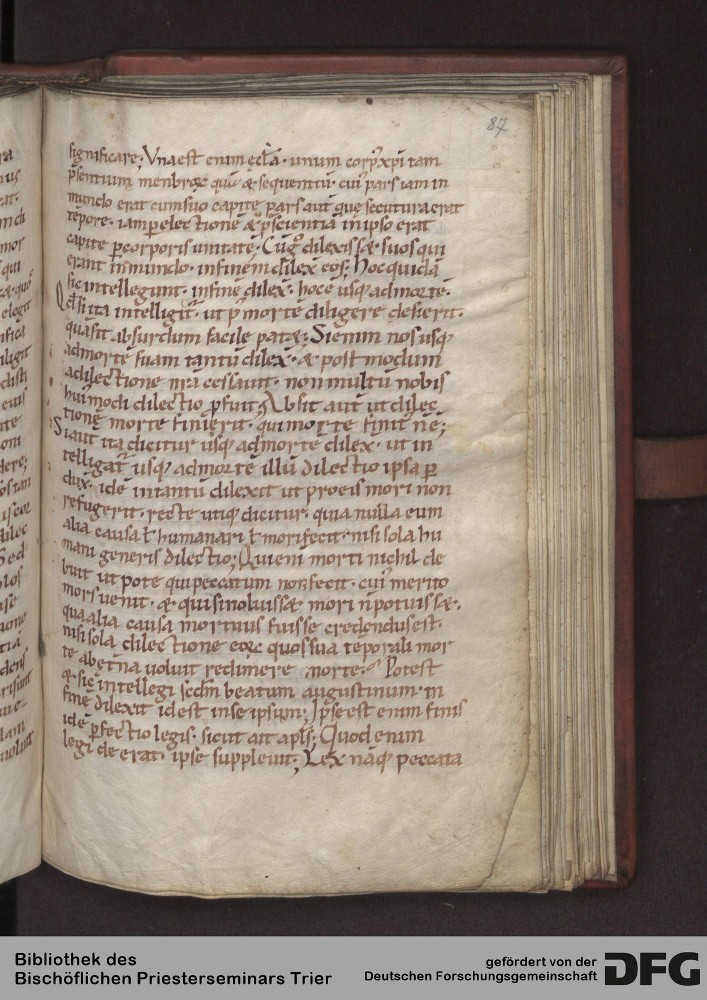 87
significare; Una est enim eccla · unum corp xpi tam
psentium menbroꝝ quā & sequentiū · cui' pars iam in
mundo erat cum suo capite pars aut quę secutura erat
tēpore · iam p electionē & pscientiā in ipso erat
capite p corporis unitatē · Cū g° dilexissæ suos qui
erant in mundo · in finem dilex eos; hoc quidā
sic intellegunt · in finē dilex · hoc ē usq; ad mortē ·
Qd si ita intelligit' · ut p' mortē diligere desierit ·
quasit absurdum facile patæ; Si enim nos usq;
ad mortē suam tantū dilex · & post modum
a dilectione nra cessauit · non multū nobis
hui'modi dilectio pfuit; Absit aut ut dilec
tionē morte finierit · qui morte finit' ne;
Si aut ita dicitur usq; ad mortē dilex · ut in
telligat' usq; ad mortē illū dilectio ipsa p
dux · idē in tantū dilexit ut pro eis mori non
refugerit · recte utiq; dicitur · quia nulla eum
alia causa ł humanari ł mori fecit · nisi sola hu
mani generis dilectio; Qui enī morti nichil de
buit ut pote qui peccatum non fecit · cui' merito
mors uenit · & qui si noluissæ mori n potuissæ ·
qua alia causa mortuus fuisse credendus est ·
nisi sola dilectione eoꝝ quos sua tēporali mor
te ab etna uoluit redimere morte; Potest
& sic intellegi scdm beatum augustinum · in
finē dilexit id est in se ipsum; Ipse est enim finis
idē pfectio legis · sicut ait apls; Quod enim
legi deerat · ipse suppleuit; Lex nāq; peccata
Bibliothek des
Bischöflichen Priesterseminars Trier
gefördert von der
Deutschen Forschungsgemeinschaft
DFG